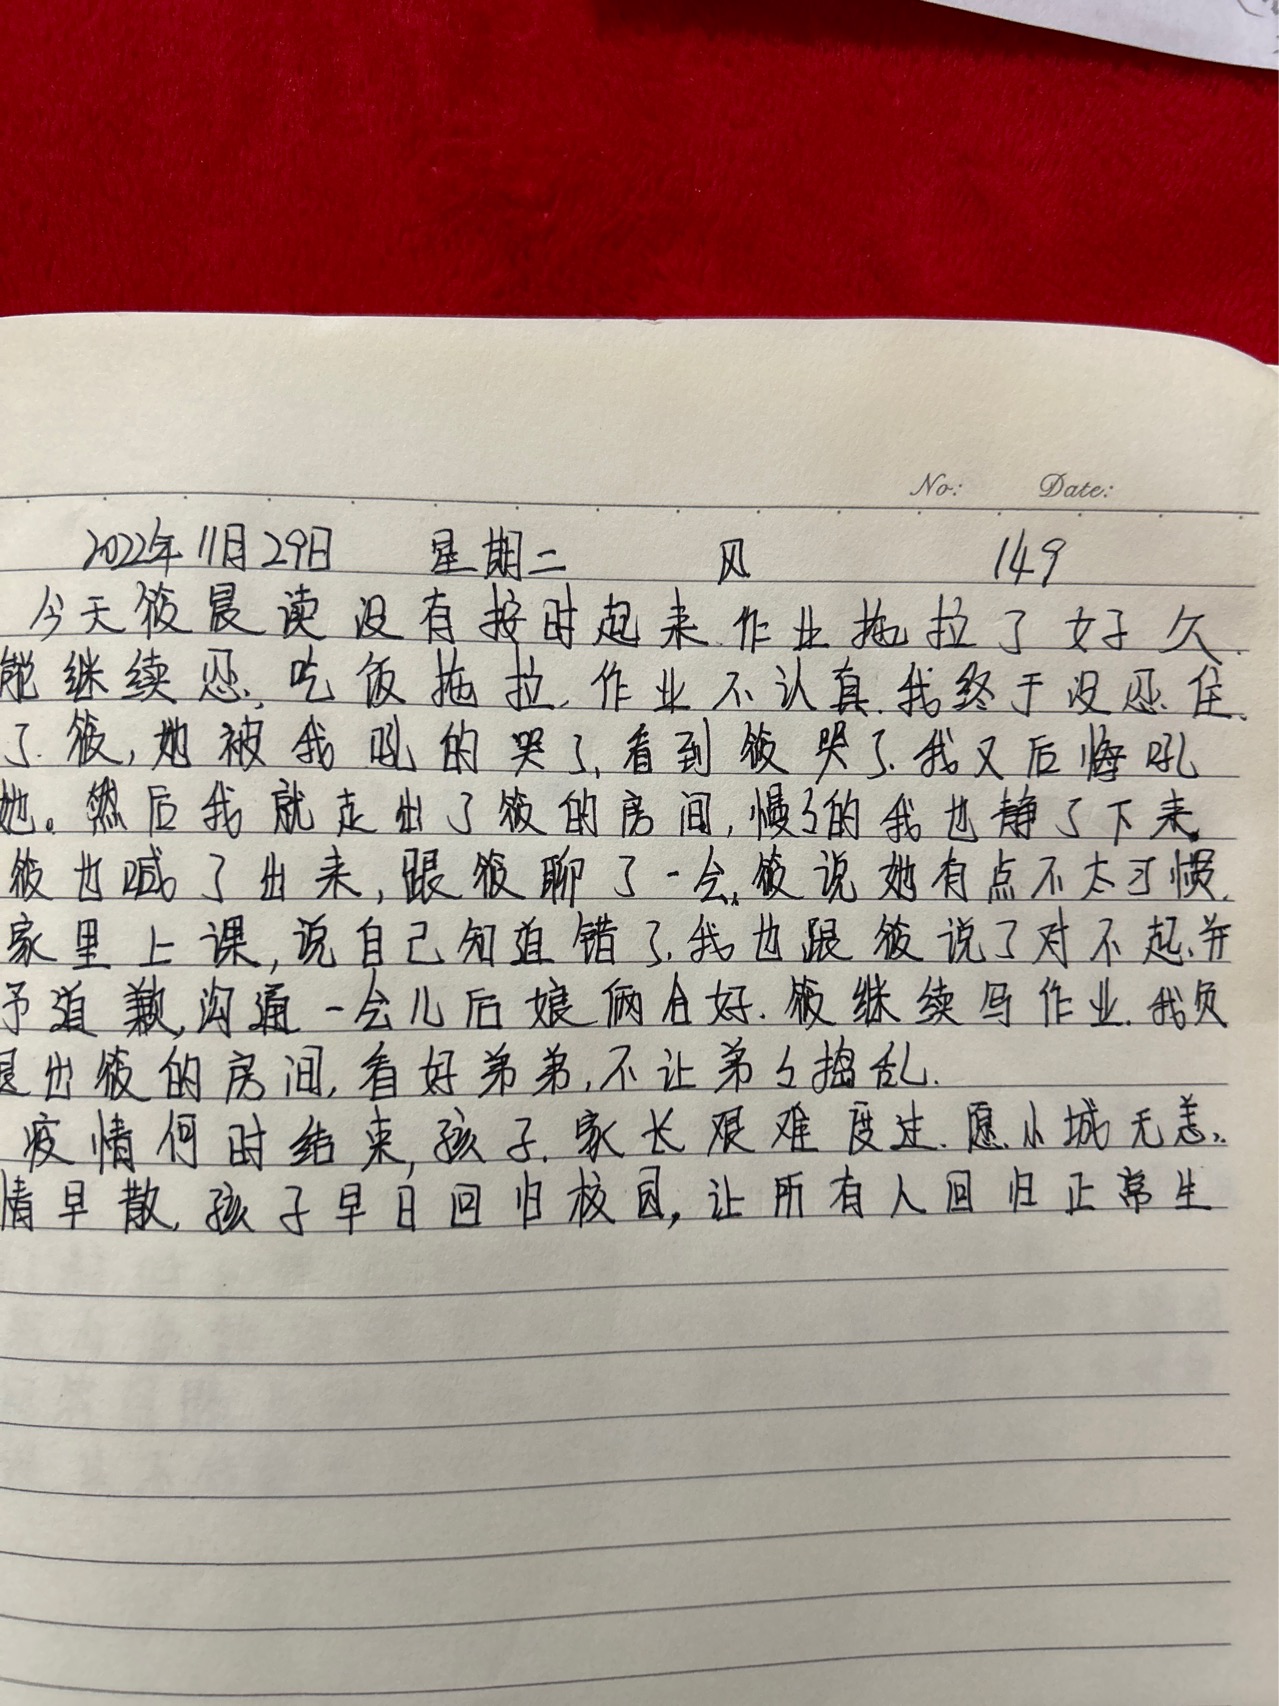 No: Date:
2022年11月29日 星期二 风 149
今天筱晨读没有按时起来.作业拖拉了好久.
能继续忍,吃饭拖拉.作业不认真.我终于没忍住.
了筱,她被我吼的哭了,看到筱哭了.我又后悔吼
她。然后我就走出了筱的房间,慢々的我也静了下来.
筱也喊了出来,跟筱聊了一会,筱说她有点不太习惯.
家里上课,说自己知道错了.我也跟筱说了对不起.并
予道歉,沟通一会儿后娘俩合好.筱继续写作业.我负
退出筱的房间,看好弟弟,不让弟々捣乱.
疫情何时结束,孩子.家长艰难度过.愿小城无恙..
情早散,孩子早日回归校园,让所有人回归正常生